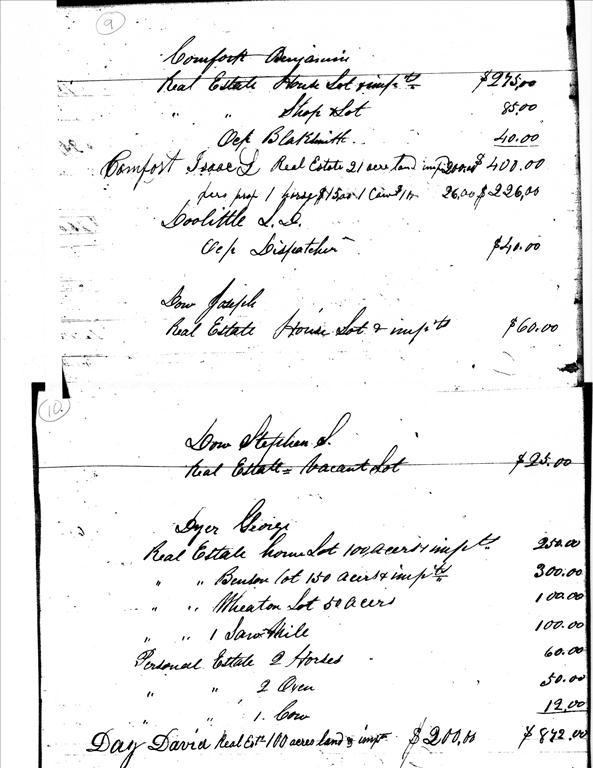 9
Comfort Benjamin
Real Estate House Lot & imp'ts $275.00
" " Shop & Lot 85.00
Ocp Blaksmith 40.00
Comfort Isaac L Real Estate 21 acre land imp 200.00 $400.00
pers prop 1 horse $15.00 1 Cow $11 26.00 $226.00
Doolittle L. D.
Ocp Dispatcher $40.00
Dow Joseph
Real Estate House Lot & imp'ts $60.00
10.
Dow Stephen S.
Real Estate = Vacant Lot $25.00
Dyer George
Real Estate home Lot 100 acers & imp'ts 250.00
" " Benson Lot 150 acers & imp'ts 300.00
" " Wheaton Lot 50 acers 100.00
" " 1 Saw Mile 100.00
Personal Estate 2 Horses 60.00
" " 2 Oxen 50.00
" " 1. Cow 12.00
Day David Real Est. 100 acres land & impts $200.00 $872.00